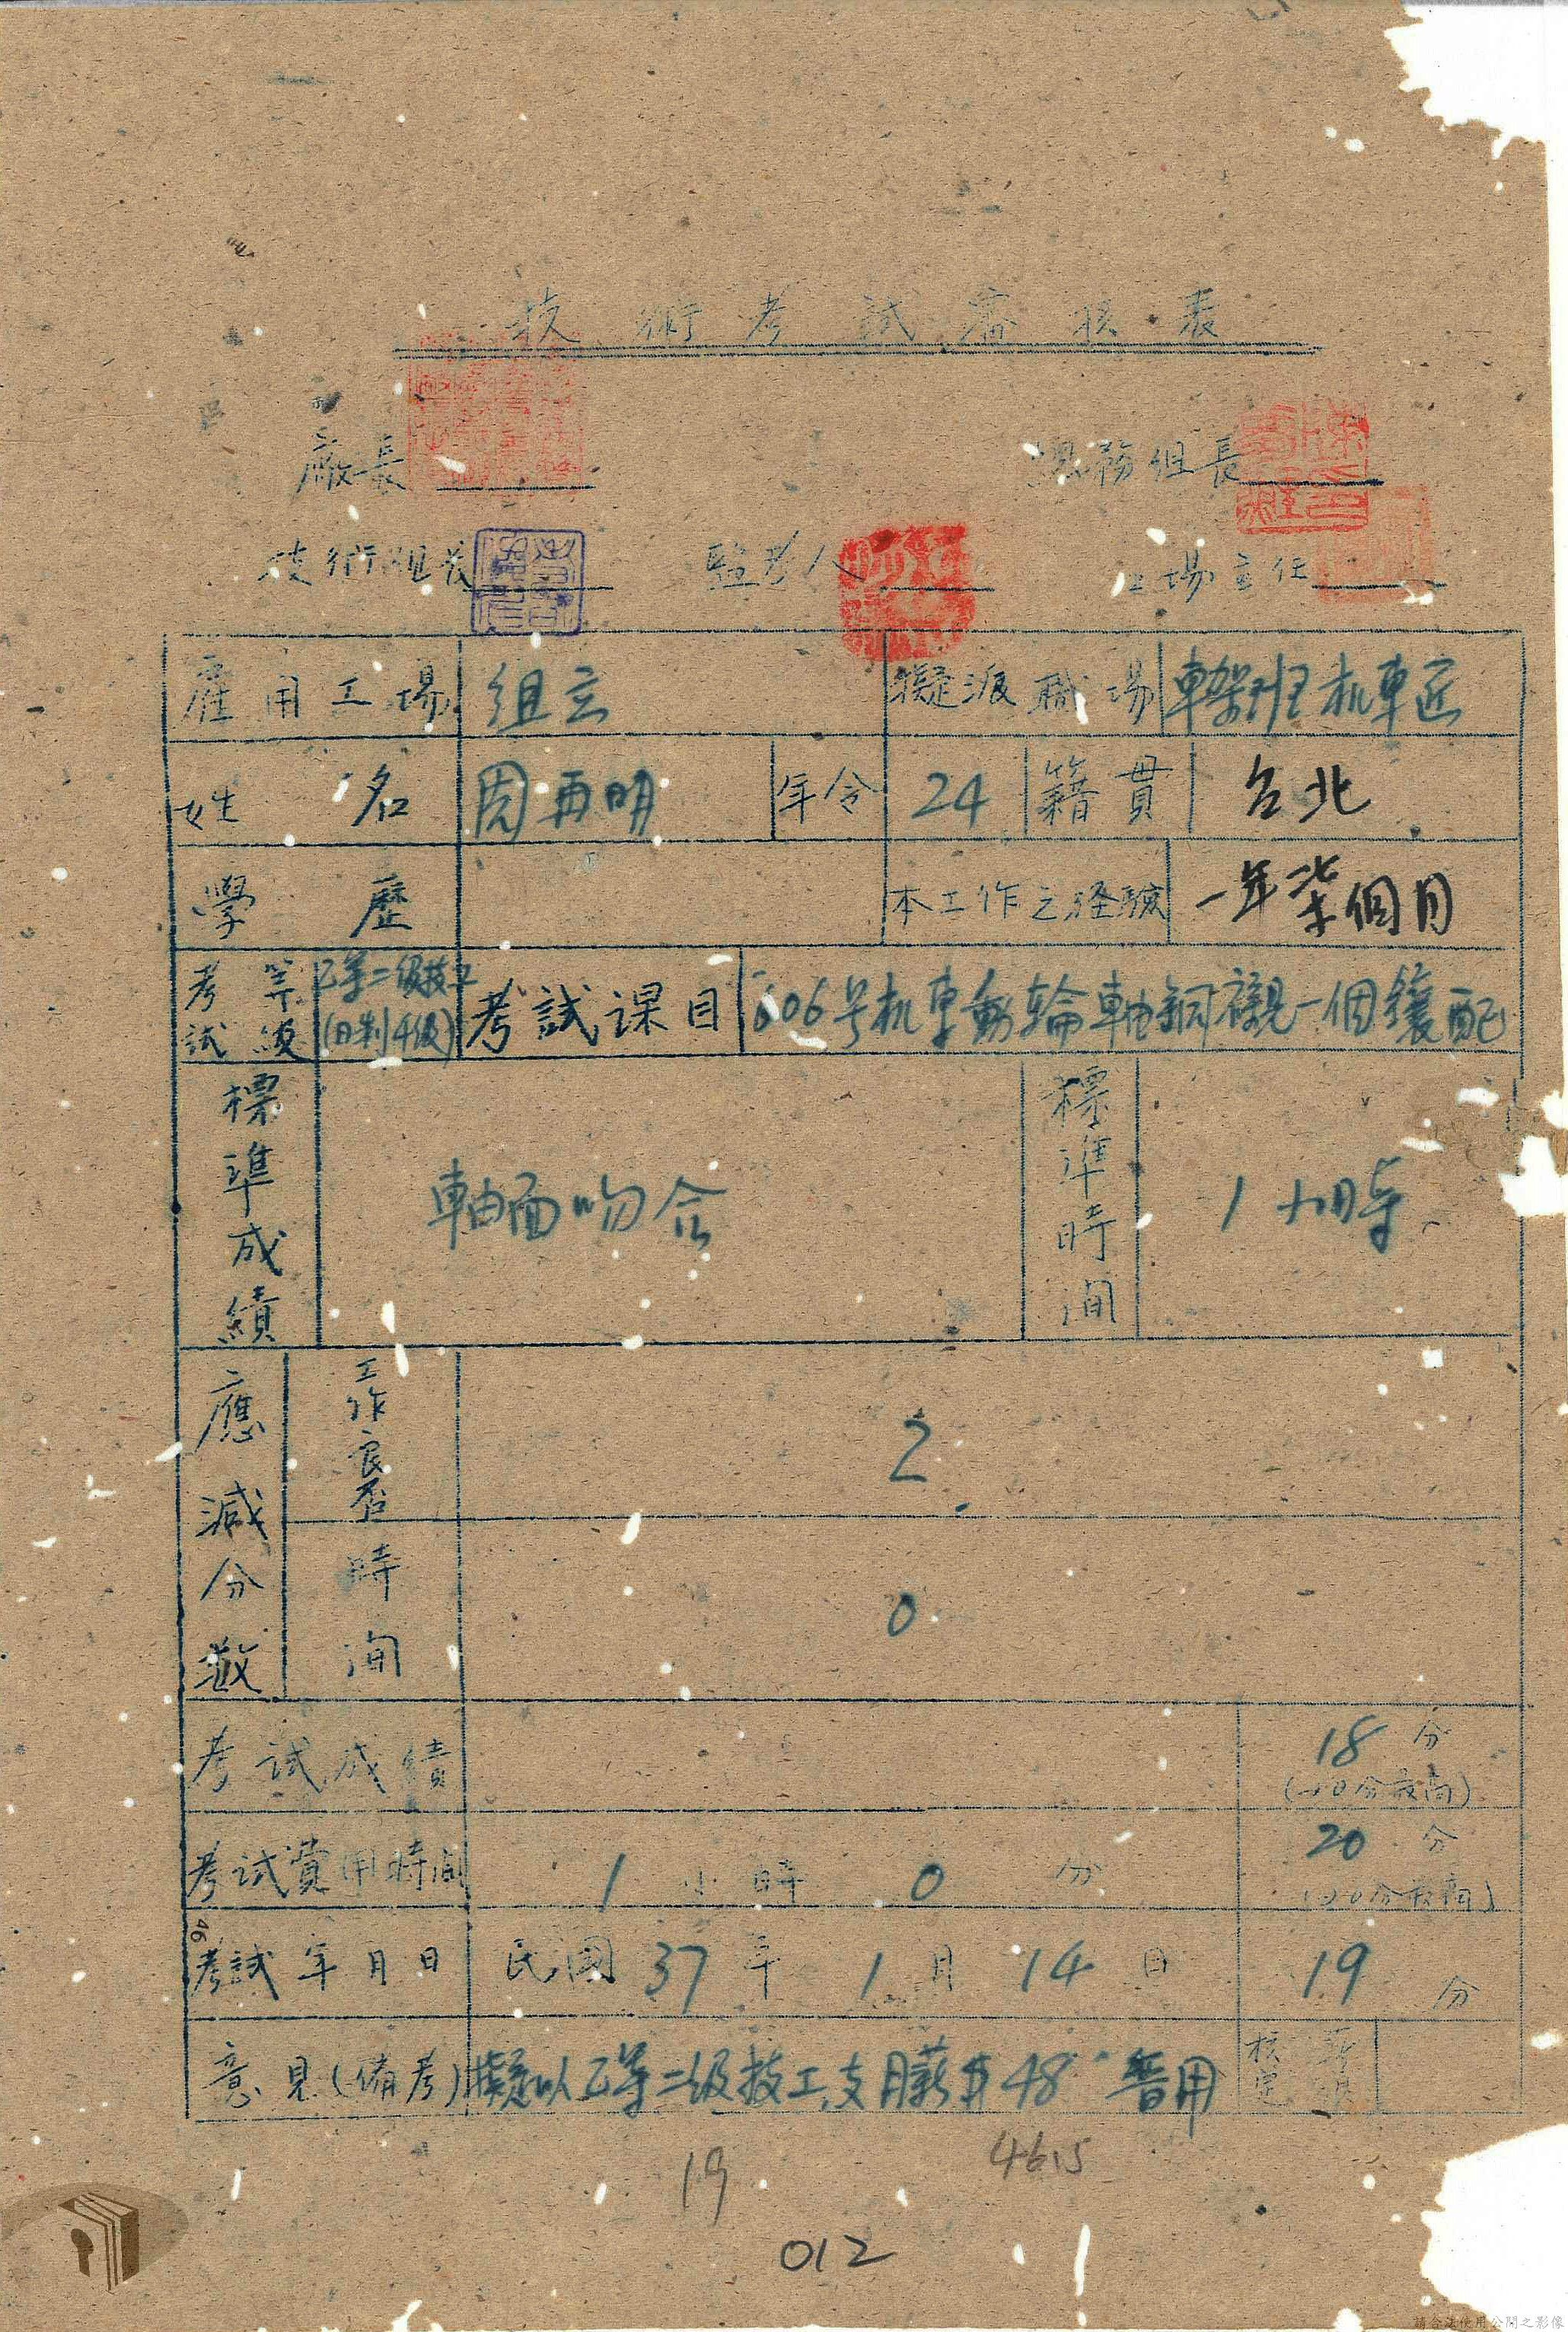 技術考試審核表
廠長 課務組長
技術組長 監考人 工場主任
雇用工場 組立 擬派職場 車架班机車匠
姓名 周再明 年令 24 籍貫 台北
學歷 本工作之経驗 一年柒個月
考試等級 乙等二級技工(旧制4級) 考試課目 606号机車動輪軸銅襯一個鑲配
標準成績 軸面吻合 標準時间 1小時
應減分数 工作良否 2
時间 0
考試成績 18分
(20分最高)
考試費用時间 1小時0分 20分
(20分最高)
考試年月日 民國37年1月14日 19分
46
意見(備考) 擬以乙等二級技工,支月薪$48 暫用 核定
19 46.5
012
請合法使用公開之影像